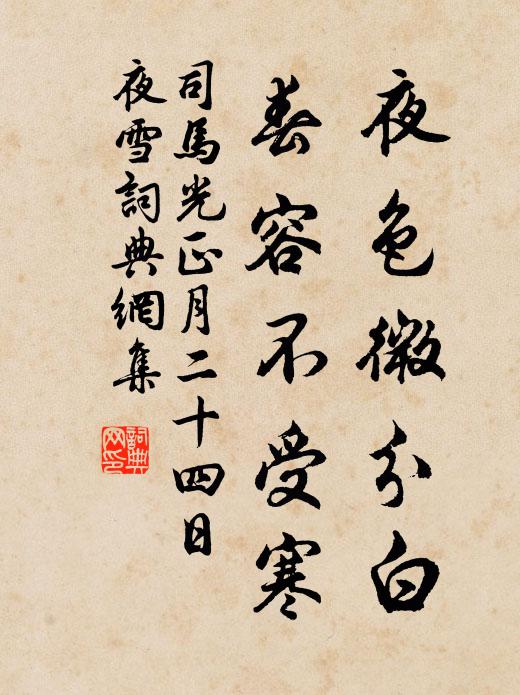 夜色微分白
春容不受寒
司馬光正月二十四日
夜雪詞典網集
詞典
网印